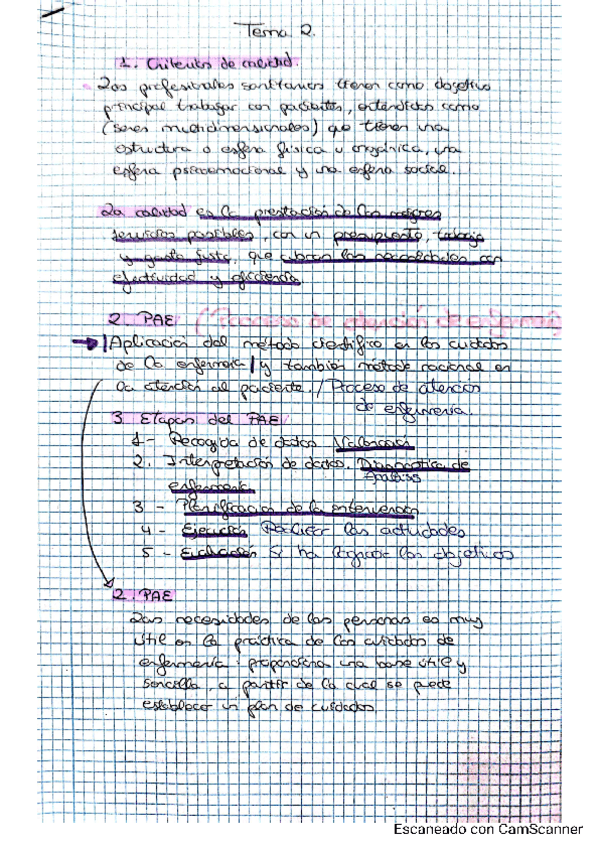 Tema 2.
1. Criterios de calidad.
Los profesionales sanitarios tienen como objetivo
principal trabajar con pacientes, entendidos como
(seres multidimensionales) que tienen una
estructura o esfera física u orgánica, una
esfera psicoemocional y una esfera social.
La calidad es la prestación de los mejores
servicios posibles, con un presupuesto, trabajo
y gasto justo, que cubran las necesidades con
efectividad y eficiencia
2. PAE (Proceso de atención de enfermería
Aplicación del método científico en los cuidados
de la enfermería / y también método racional en
la atención al paciente. / Proceso de atención
de enfermería.
3. Etapas del PAE
1 - Recogida de datos Valoración
2. Interpretación de datos. Diagnóstico de
Análisis
enfermería
3 - Planificación de la intervención
4 - Ejecución Realizar las actividades
5 - Evaluación Si ha logrado los objetivos
2. PAE
Las necesidades de las personas es muy
útil en la práctica de los cuidados de
enfermería : proporciona una base útil y
sencilla, a partir de la cual se puede
establecer un plan de cuidados.
Escaneado con CamScanner